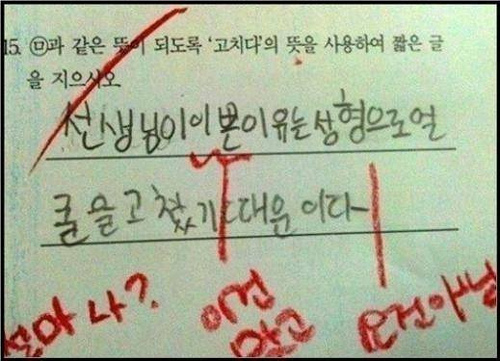 15. ㉤과 같은 뜻이 되도록 '고치다'의 뜻을 사용하여 짧은 글
을 지으시오
선생님이 이쁜이유는 성형으로얼
굴을고쳤기대문이다
설마 나?
이건 요건아님
맞고